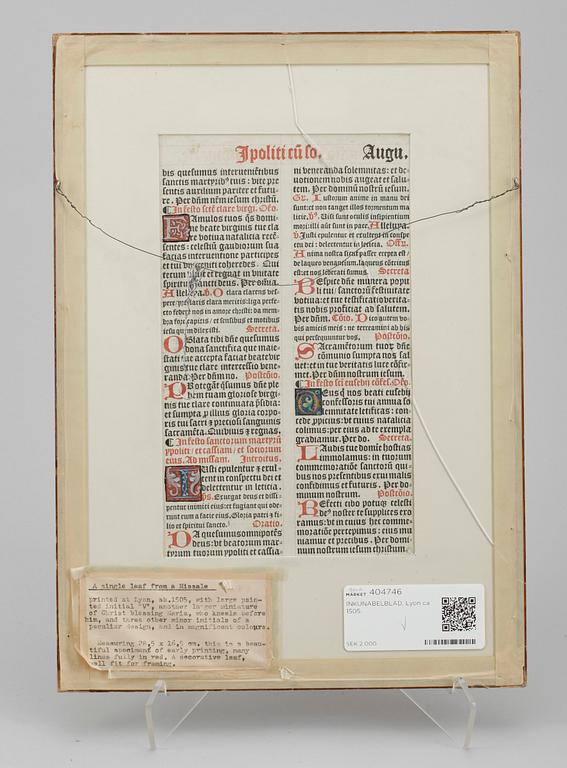 Ipoliti cū so. Augu.
bis quesumus interueniētibus
sanctis martyribꝰ tuis: vite pre
sentis auxilium pariter et futu
re. Per dūm nr̄m iesum christū.
¶ In festo scte clare virgi. Oro.
Famulos tuos q̄s domi
ne beate virginis tue cla
re votiua natalicia recē
sentes: celestiū gaudiorum sua
facias interuentione participes
et tui coheredes. Qui
tecum et regnat in vnitate
spiritus sancti deus. Per omia.
Alleluya. ꝟ. O clara clarens ve
Secreta.
Oblata tibi dn̄e quesumus
dona sanctifica que maie
stati tue accepta faciat beate vir
ginis tue clare intercessio vene
randa. Per dn̄m no. Postcōio.
Protegāt q̄sumus dn̄e ple
bem tuam gloriose virgi
nis tue clare continuata p̄sidia:
et sumpta pillius gloria corpo
ris tui sacri et preciosi sanguinis
sacramēta. Qui viuis et regnas.
¶ In festo sanctorum martyrū
ypoliti et cassiani et sociorum
eius. Ad missam. Introitus.
Iusti epulentur et exul
tent in conspectu dei et
delectentur in leticia.
ps. Exurgat deus et dissi
pentur inimici eius: et fugiant qui ode
runt eum a facie eius. Gloria patri et fi
lio et spiritui sancto. Oratio.
Da quesumus omnipotēs
deus: vt beatorum mar
tyrum tuorum ypoliti et cassia
ni veneranda solemnitas: et de
uotionem nobis augeat et salu
tem. Per dominū nostrū iesum.
Gr. Iustorum anime in manu dei
sunt: et non tanget illos tormentum ma
licie. ꝟ. Visi sunt oculis insipientium
mori: illi aūt sunt in pace. Alleluya.
ꝟ. Iusti epulentur et exultent in conspe
ctu dei: delectentur in leticia. Offr.
Anima nostra sicut passer erepta est
de laqueo venantium. laqueus cōtritus
est: et nos liberati sumus. Secreta
Respice dn̄e munera popu
li tui sanctorū festiuitate
votiua: et tue testificatio verita
tis nobis proficiat ad salutem.
Per dn̄m. Cōio. Dico autem vo
bis amicis meis: ne terreamini ab his
qui persequuntur vos. Postcōio.
Sacramētorum tuorū dn̄e
cōmunio sumpta nos sal
uet: et in tue veritatis luce cōfir
met. Per dn̄m nostrum iesum.
¶ In festo sci eusebij cōfes. Oro.
Deus q̄ nos beati eusebij
confessoris tui annua so
lemnitate letificas: con
cede ppicius: vt cuius natalicia
colimus: per eius ad te exempla
gradiamur. Per do. Secreta.
Laudis tue domine hostias
immolamus: in tuorum
commemoratiōe sanctorū qui
bus nos presentibus erui malis
confidimus et futuris. Per do
minum nostrum. Postcōio.
Refecti cibo potuqꝫ celesti
deꝰ noster te supplices ero
ramus: vt in cuius hec comme
moratiōe percepimus: eius mu
niamur et precibus. Per domi
num nostrum iesum christum.
A single leaf from a Missale
printed at Lyon, ab.1505, with large pain-
ted initial "V", another larger miniature
of Christ blessing Maria, who kneels before
him, and three other minor initials of a
peculiar design, and in magnificent colours.
Measuring 28,5 x 16,5 cm, this is a beau-
tiful specimen of early printing, many
lines fully in red. A decorative leaf,
well fit for framing.
MARKET 404746
INKUNABELBLAD, Lyon ca
1505.
SEK 2.000